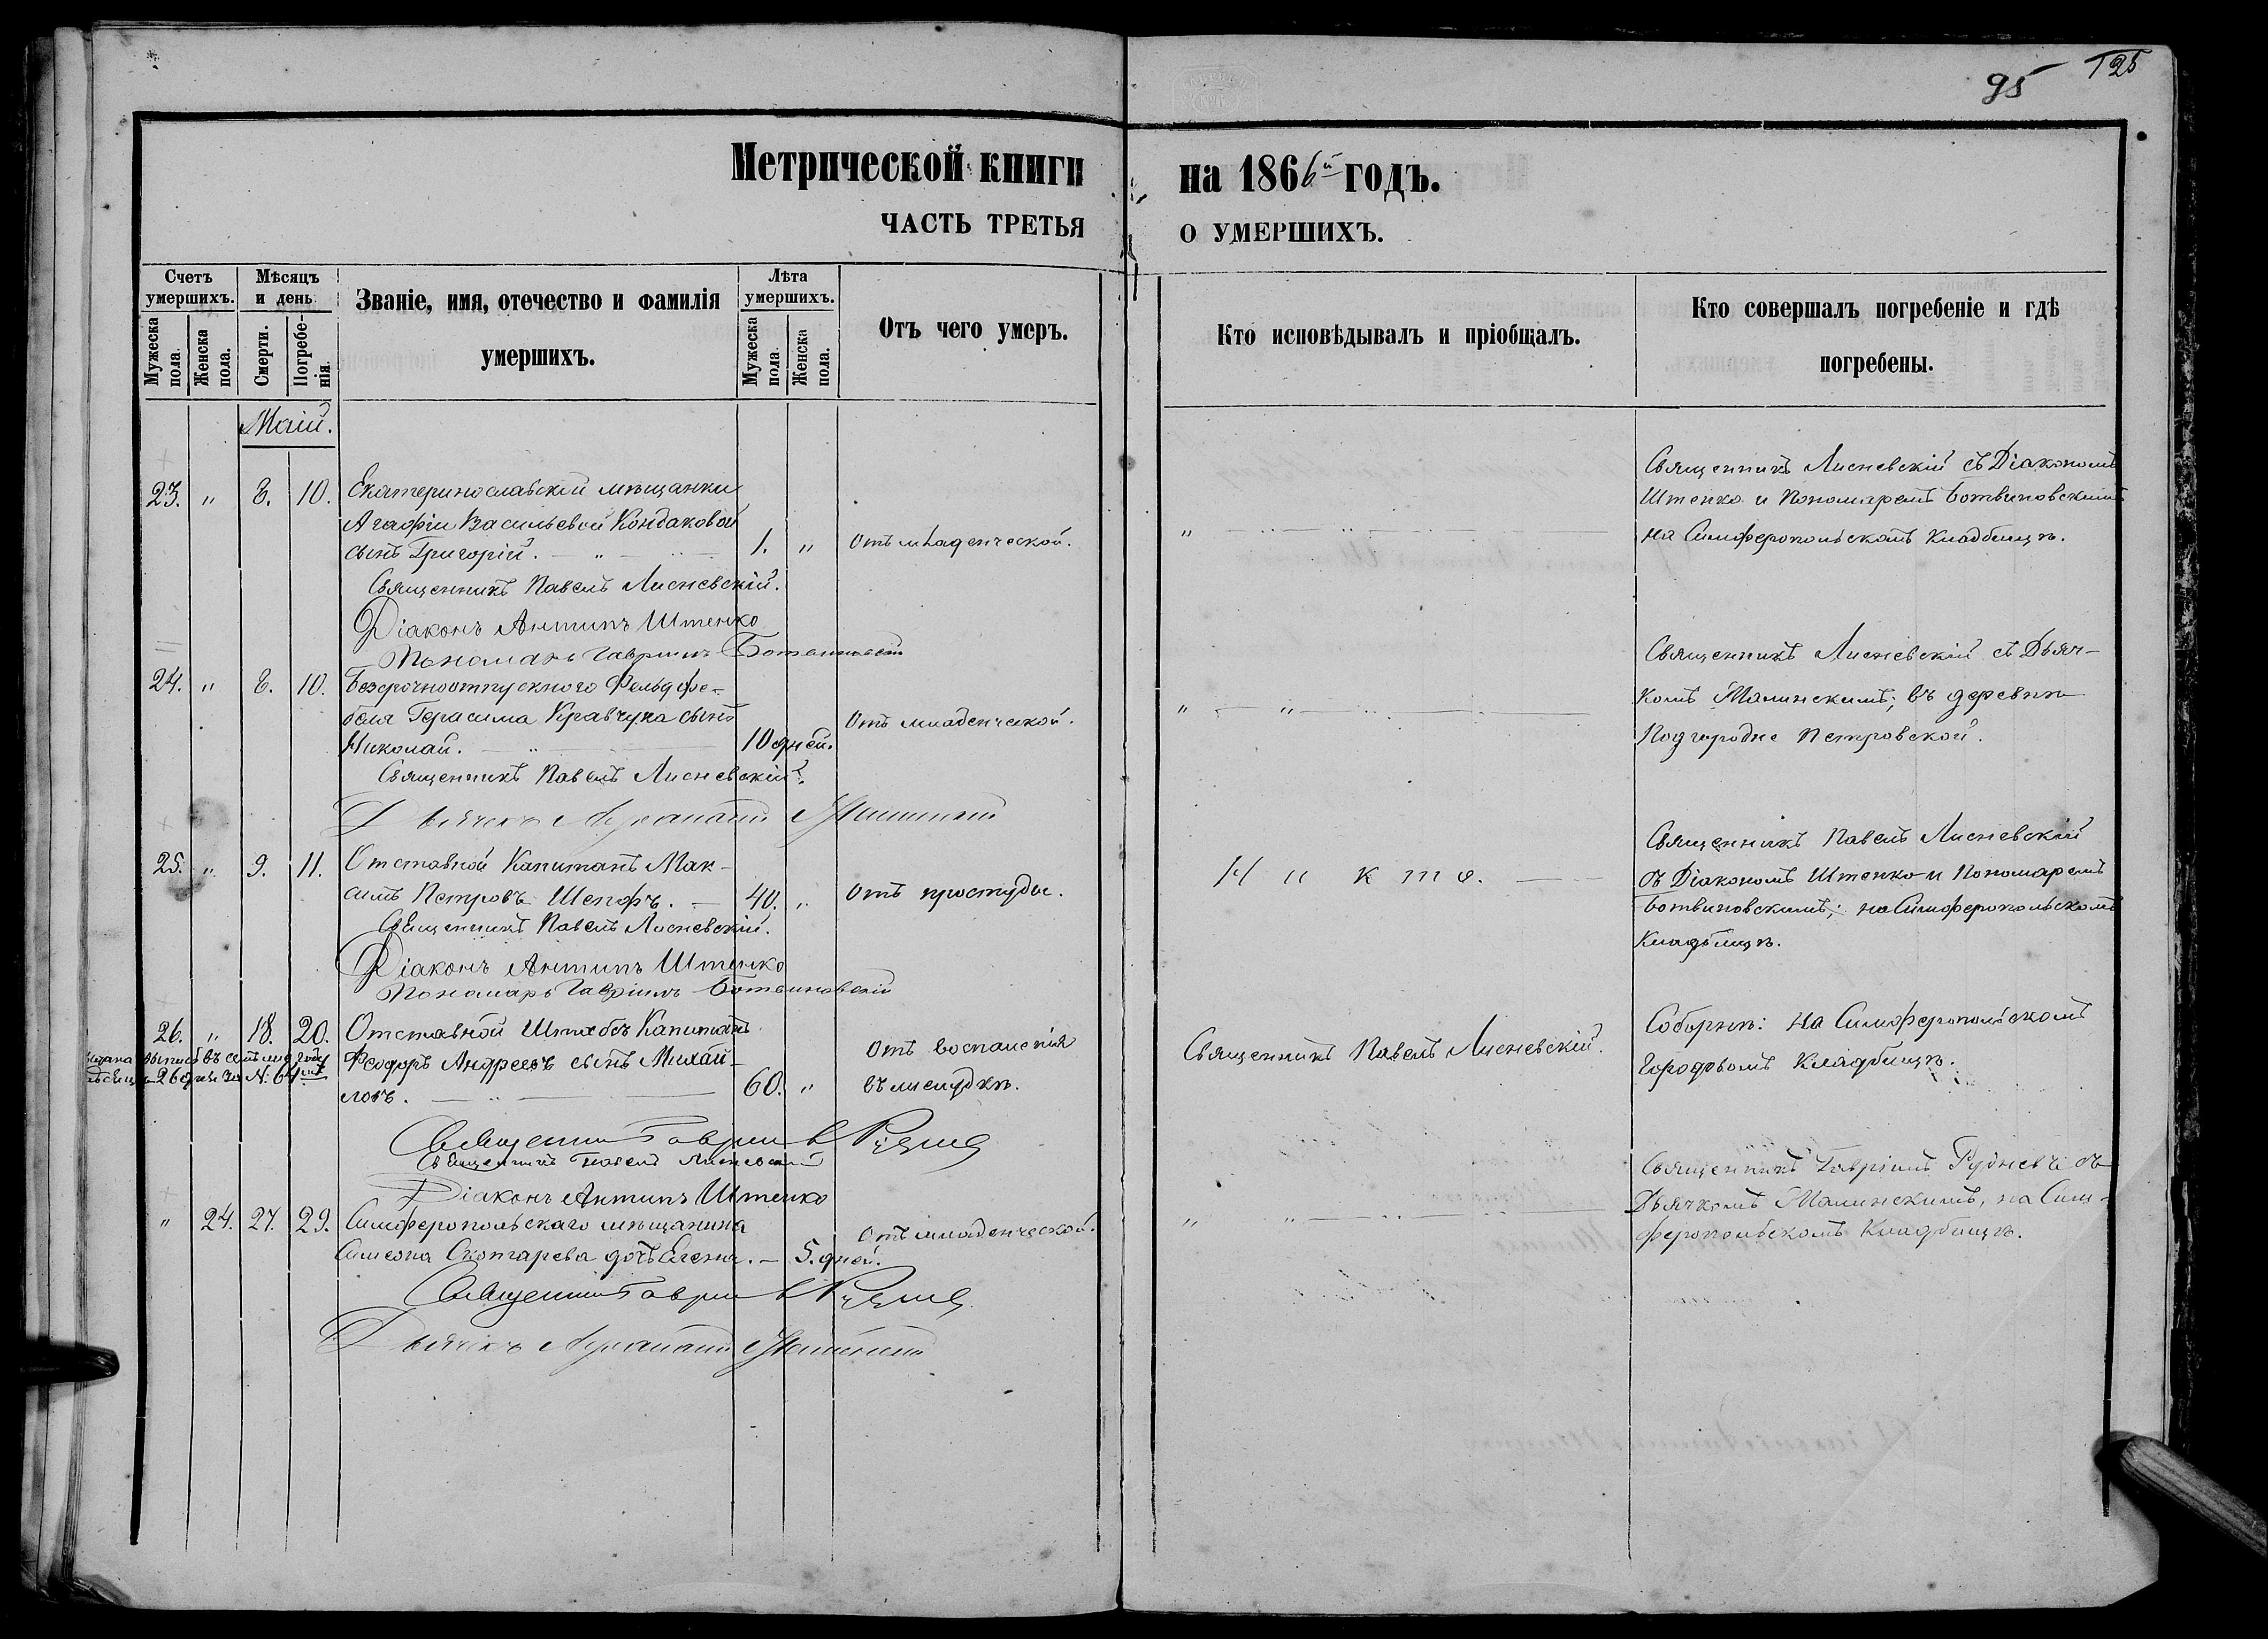 95 125
Метрической книги на 1866й годъ.
ЧАСТЬ ТРЕТЬЯ О УМЕРШИХЪ.
Счетъ умершихъ.
Мужеска пола.
Женска пола.
Мѣсяцъ и день
Смерти.
Погребенія.
Званіе, имя, отечество и фамилія
умершихъ.
Лѣта умершихъ.
Мужеска пола.
Женска пола.
Отъ чего умеръ.
Кто исповѣдывалъ и пріобщалъ.
Кто совершалъ погребеніе и гдѣ
погребены.
Маій.
23. " 8. 10. Екатеринославской мѣщанки
Агафіи Васильевой Кондаковой
сынъ Григорій. — " — 1. " Отъ младенческой.
" — " —
Священникъ Лисневскій съ Діакономъ
Штенко и Пономаремъ Ботвиновскимъ
на Симферопольскомъ Кладбищѣ.
Священникъ Павелъ Лисневскій.
Діаконъ Антипъ Штенко
Пономарь Гавріилъ Ботвиновскій
24. " 8. 10. Безсрочноотпускного Фельдфе-
беля Герасима Кравчука сынъ
Николай. — " — 10 дней. Отъ младенческой.
" — " —
Священникъ Лисневскій съ Дьяч-
комъ Малинскимъ; въ деревнѣ
Подгородне Петровской.
Священникъ Павелъ Лисневскій.
Дьячекъ Малинскій
25. " 9. 11. Отставной Капитанъ Мак-
симъ Петровъ Шепофъ. — 40. " Отъ простуды.
Никто. —
Священникъ Павелъ Лисневскій
съ Діакономъ Штенко и Пономаремъ
Ботвиновскимъ; на Симферопольскомъ
Кладбищѣ.
Священникъ Павелъ Лисневскій.
Діаконъ Антипъ Штенко
Пономарь Гавріилъ Ботвиновскій
26. " 18. 20. Отставной Штабсъ Капитанъ
Феодоръ Андреевъ сынъ Михай-
ловъ. — " — 60. " Отъ воспаленія
въ желудкѣ.
выпись въ семъ году
26 дня за №. 64
Священникъ Павелъ Лисневскій.
Соборнѣ: на Симферопольскомъ
Городовомъ Кладбищѣ.
Священникъ Гавріилъ Рудневъ
Священникъ Павелъ Лисневскій
Діаконъ Антипъ Штенко
" 24. 27. 29. Симферопольскаго мѣщанина
Симеона Скотарева дочь Елена. — 5. дней. Отъ младенческой.
" — " —
Священникъ Гавріилъ Рудневъ съ
Дьячкомъ Малинскимъ, на Сим-
феропольскомъ Кладбищѣ.
Священникъ Гавріилъ Рудневъ
Дьячекъ Малинскій